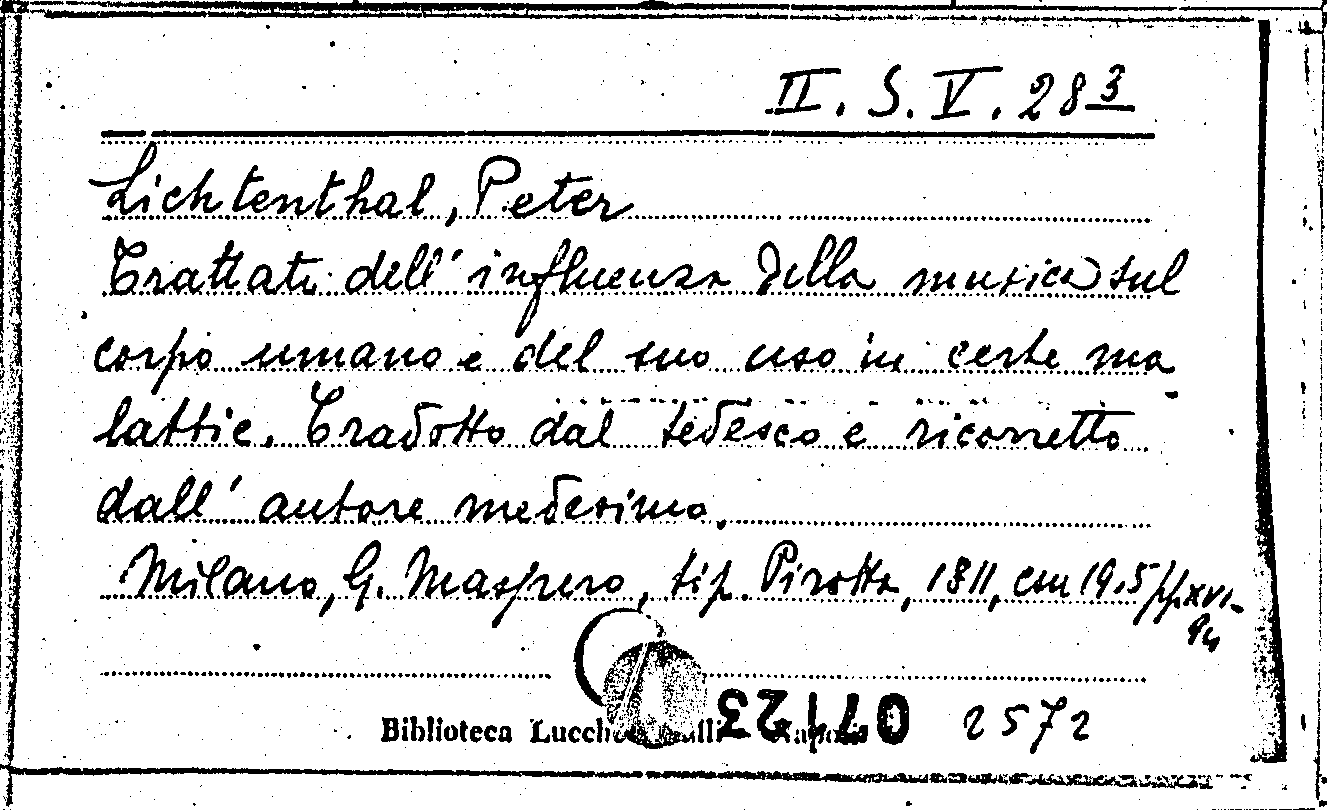 II. S. V. 28 3
Lichtenthal, Peter
Trattato dell' influenza della musica sul
corpo umano e del suo uso in certe ma
lattie. Tradotto dal tedesco e ricorretto
dall' autore medesimo.
Milano, G. Maspero, tip. Pirotta, 1811, cm 19.5 pp. XVI-
94
Biblioteca 2572